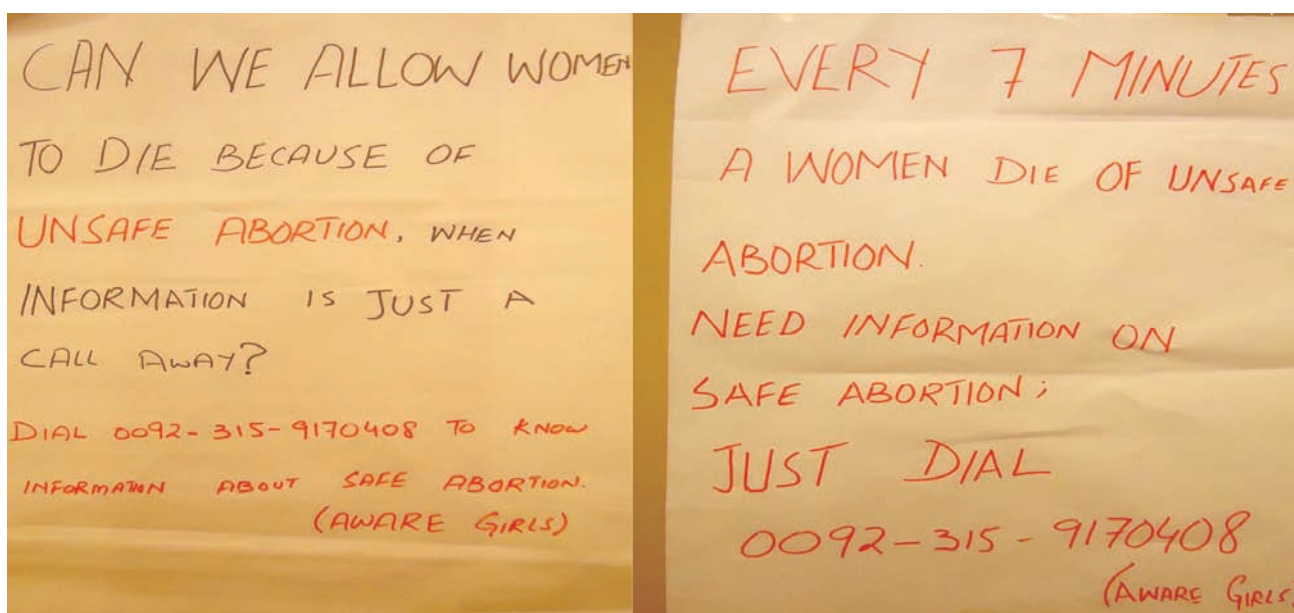 CAN WE ALLOW WOMEN
TO DIE BECAUSE OF
UNSAFE ABORTION, WHEN
INFORMATION IS JUST A
CALL AWAY?
DIAL 0092-315-9170408 TO KNOW
INFORMATION ABOUT SAFE ABORTION.
(AWARE GIRLS)
EVERY 7 MINUTES
A WOMEN DIE OF UNSAFE
ABORTION.
NEED INFORMATION ON
SAFE ABORTION;
JUST DIAL
0092-315-9170408
(AWARE GIRLS)